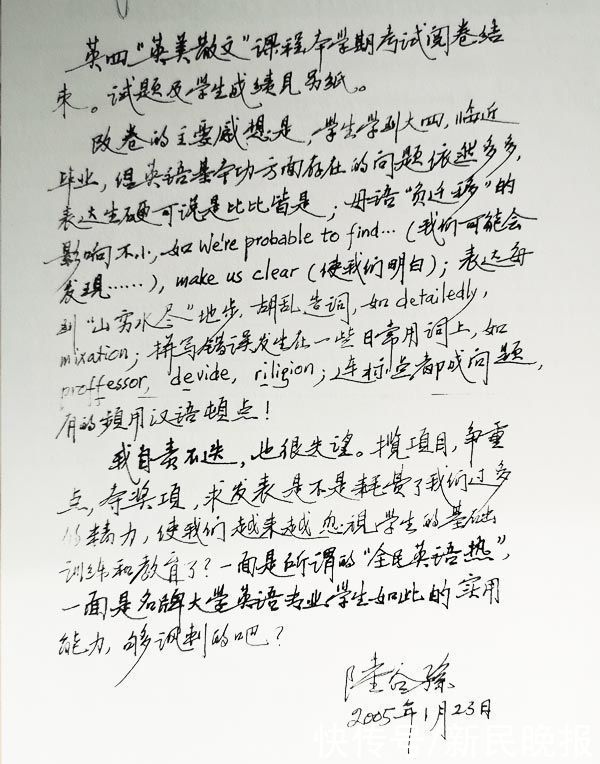 英四“英美散文”课程本学期考试阅卷结
束。试题及学生成绩见另纸。
改卷的主要感想是，学生学到大四，临近
毕业，但英语基本功方面存在的问题依然多多，
表达生硬可说是比比皆是；母语“负迁移”的
影响不小，如 We're probable to find…（我们可能会
发现……），make us clear（使我们明白）；表达每
到“山穷水尽”地步，胡乱造词，如 detailedly,
mixation；拼写错误发生在一些日常用词上，如
proffessor, devide, riligion；连标点都成问题，
有的频用汉语顿点！
我自责不迭，也很失望。揽项目，争重
点，夺奖项，求发表是不是耗费了我们过多
的精力，使我们越来越忽视学生的基础
训练和教育了？一面是所谓的“全民英语热”，
一面是名牌大学英语专业学生如此的实用
能力，够讽刺的吧？
陆谷孙
2005年1月23日
快传号/新民晚报